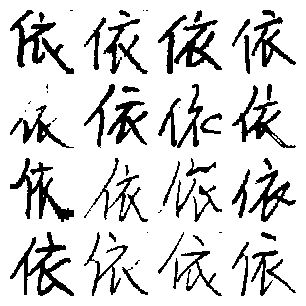 依依依依
依依依依
依依依依
依依依依